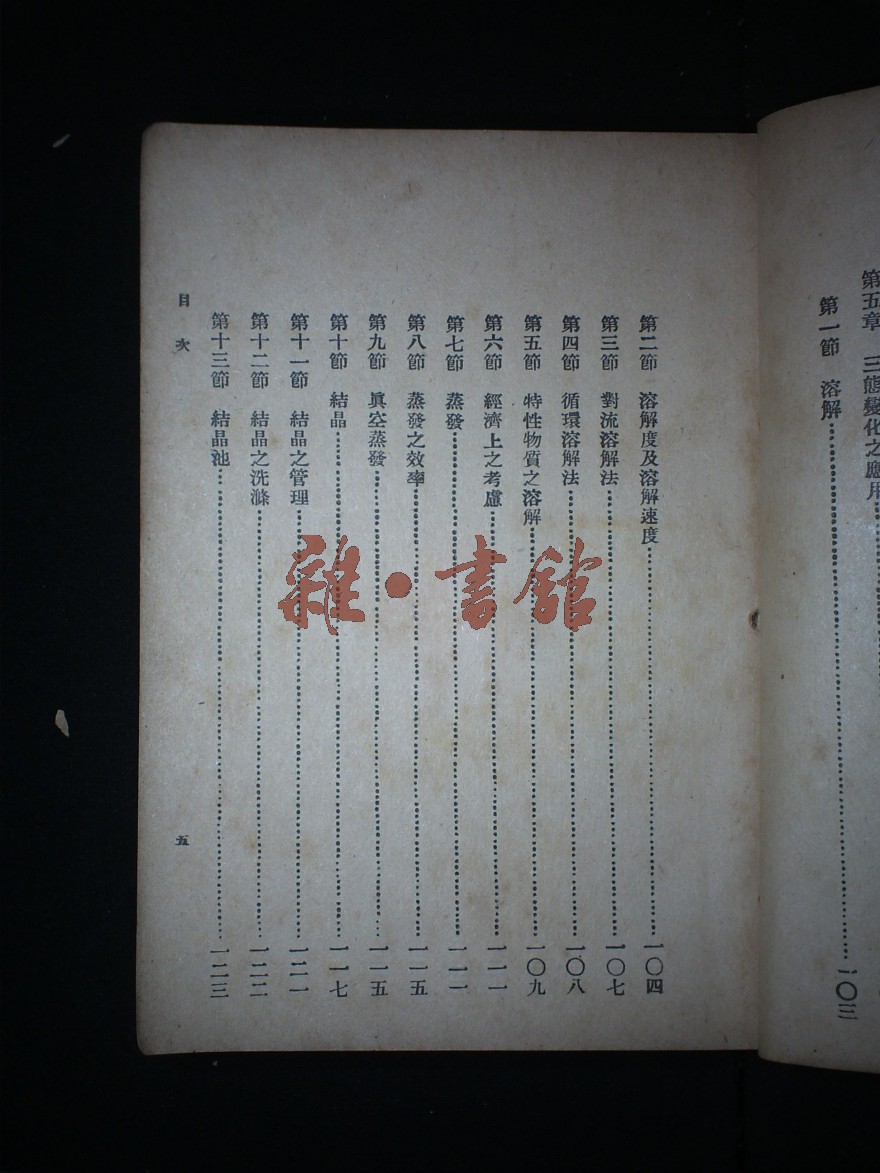 第五章　三態變化之應用
第一節　溶解…………一〇三
第二節　溶解度及溶解速度…………一〇四
第三節　對流溶解法…………一〇七
第四節　循環溶解法…………一〇八
第五節　特性物質之溶解…………一〇九
第六節　經濟上之考慮…………一一一
第七節　蒸發…………一一一
第八節　蒸發之效率…………一一五
第九節　眞空蒸發…………一一五
第十節　結晶…………一一七
第十一節　結晶之管理…………一二一
第十二節　結晶之洗滌…………一二二
第十三節　結晶池…………一二三
目次　五
雜·書館